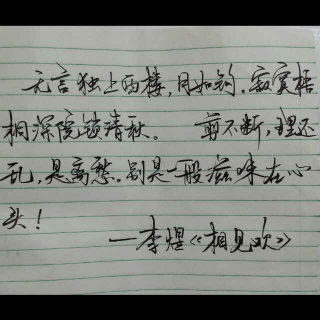 无言独上西楼，月如钩．寂寞梧
桐深院锁清秋。 剪不断，理还
乱，是离愁．别是一般滋味在心
头！
—李煜《相见欢》